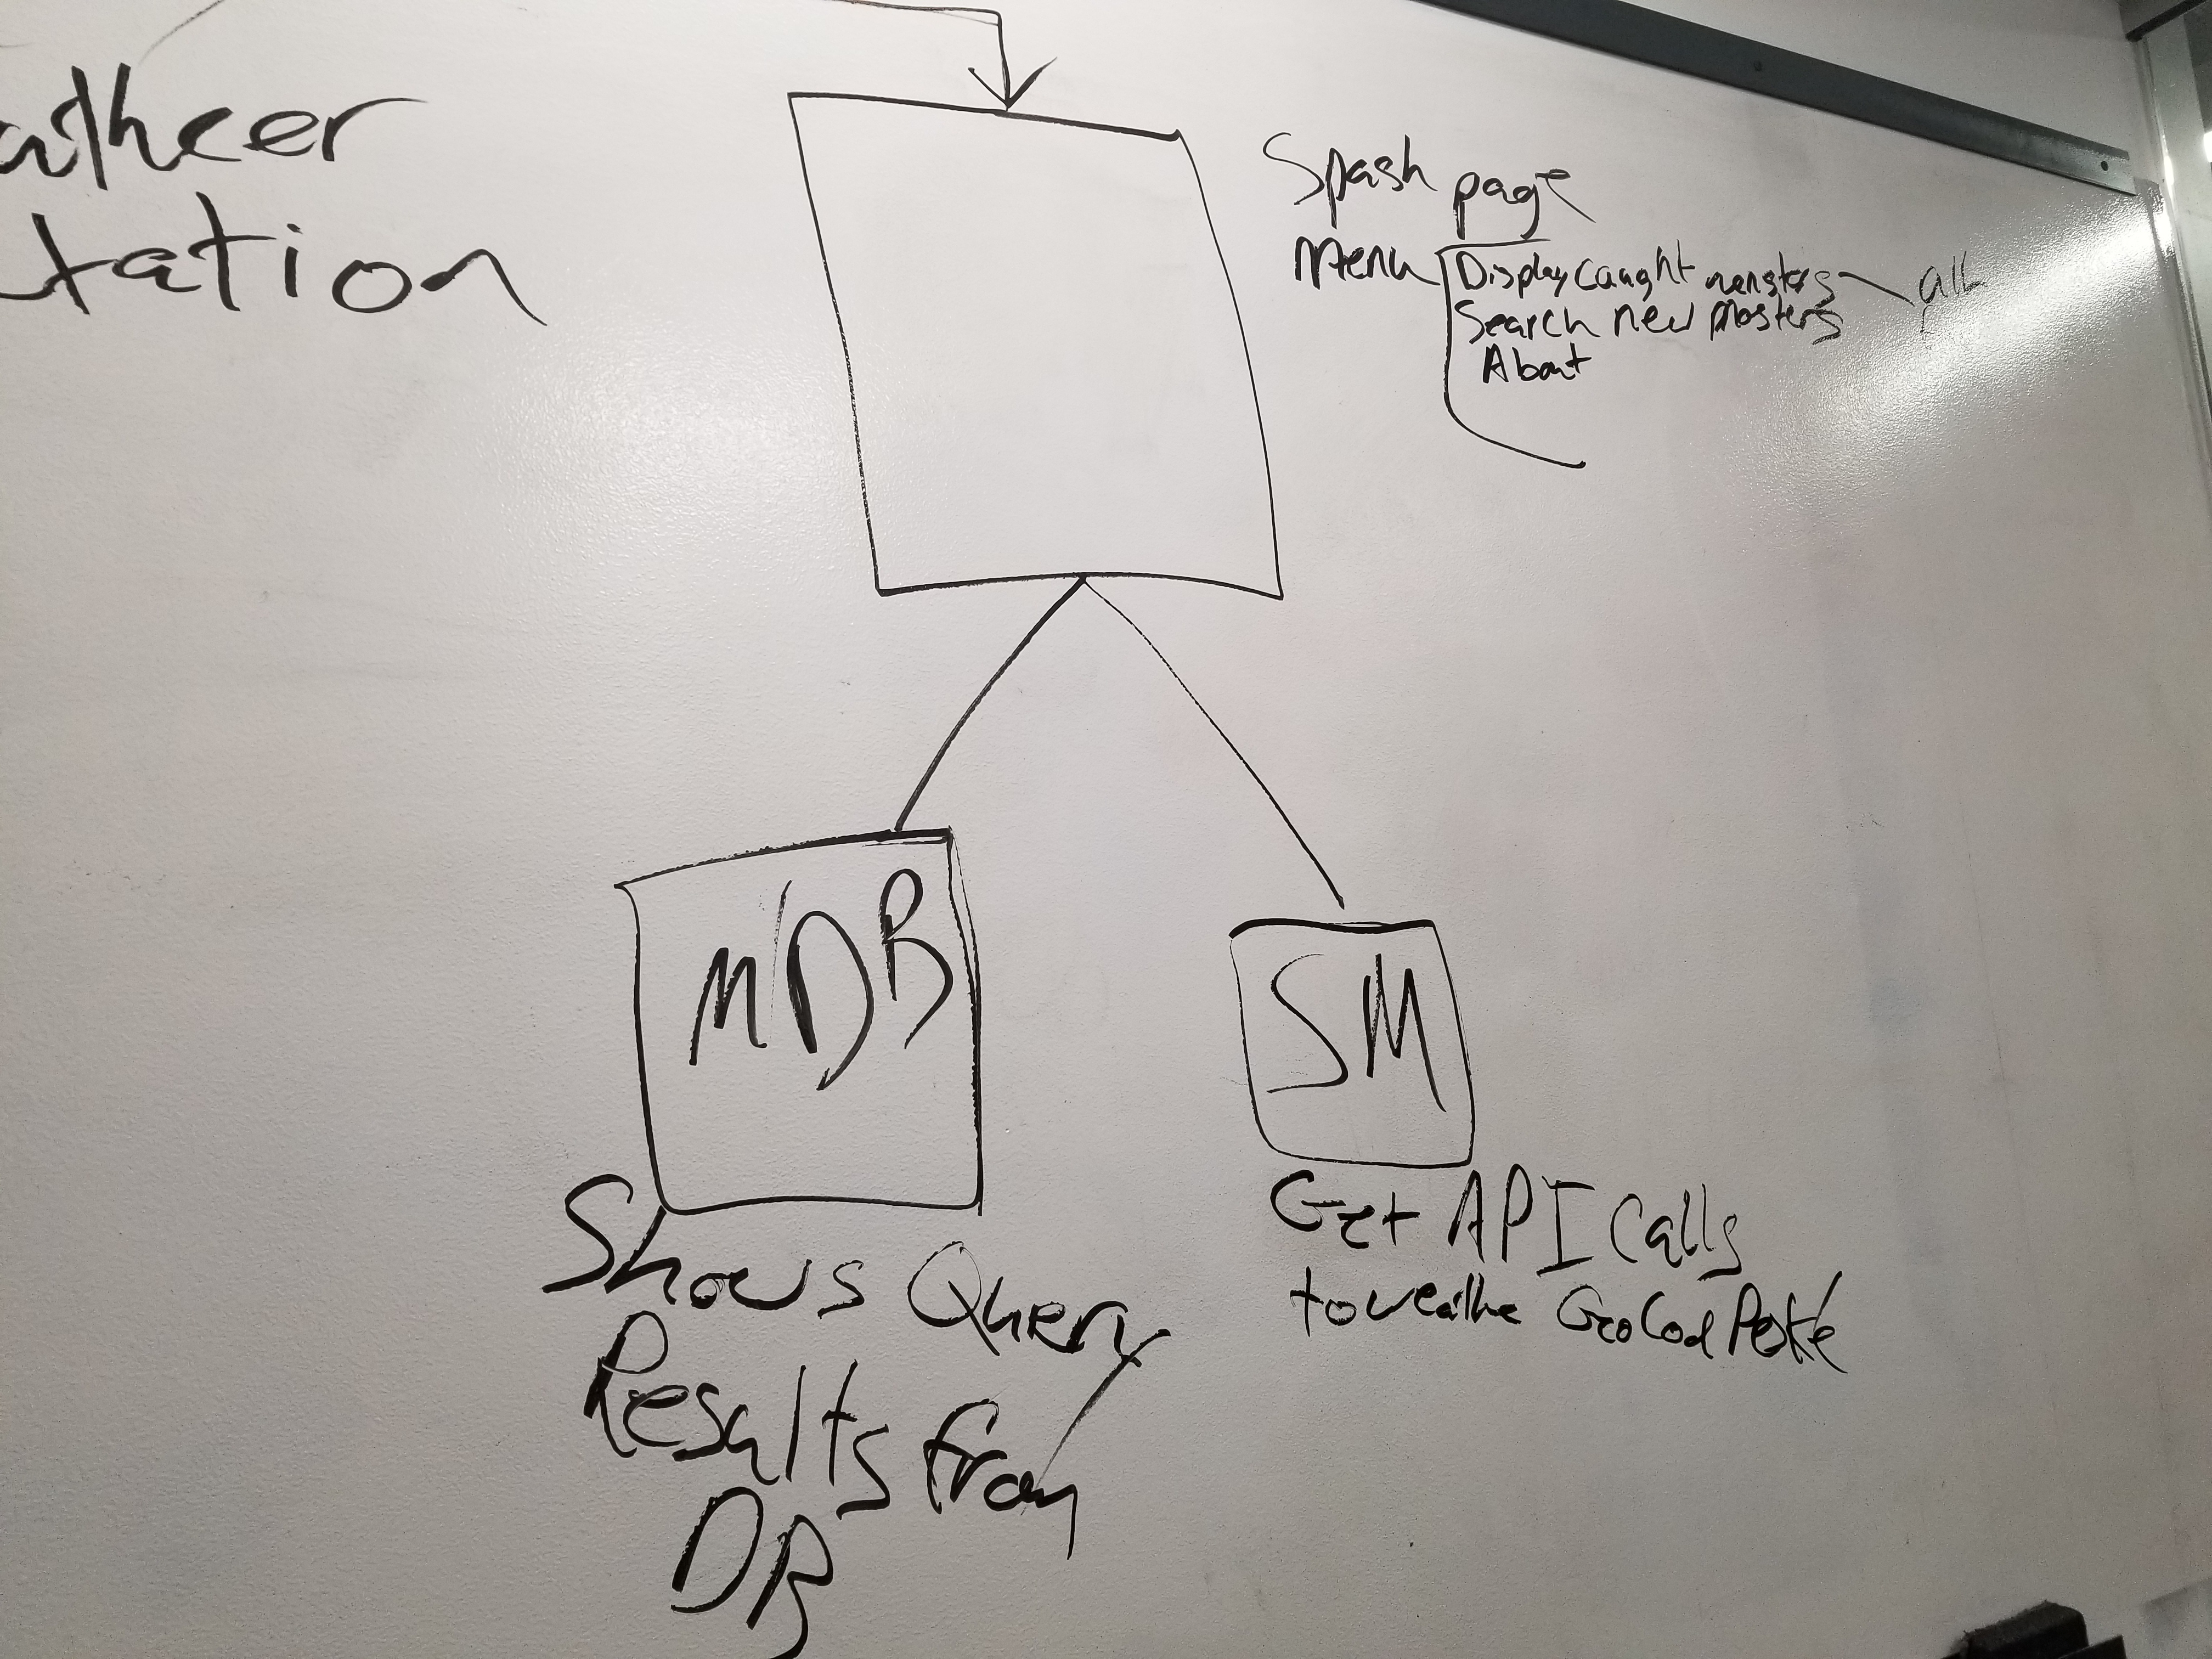 atheer
tation
Spash page
Menu
Display caught monsters
all
Search new Mosters
About
MDB
SM
Shows Query
Results from
DB
Get API Calls
to weathe GeoCod Poké